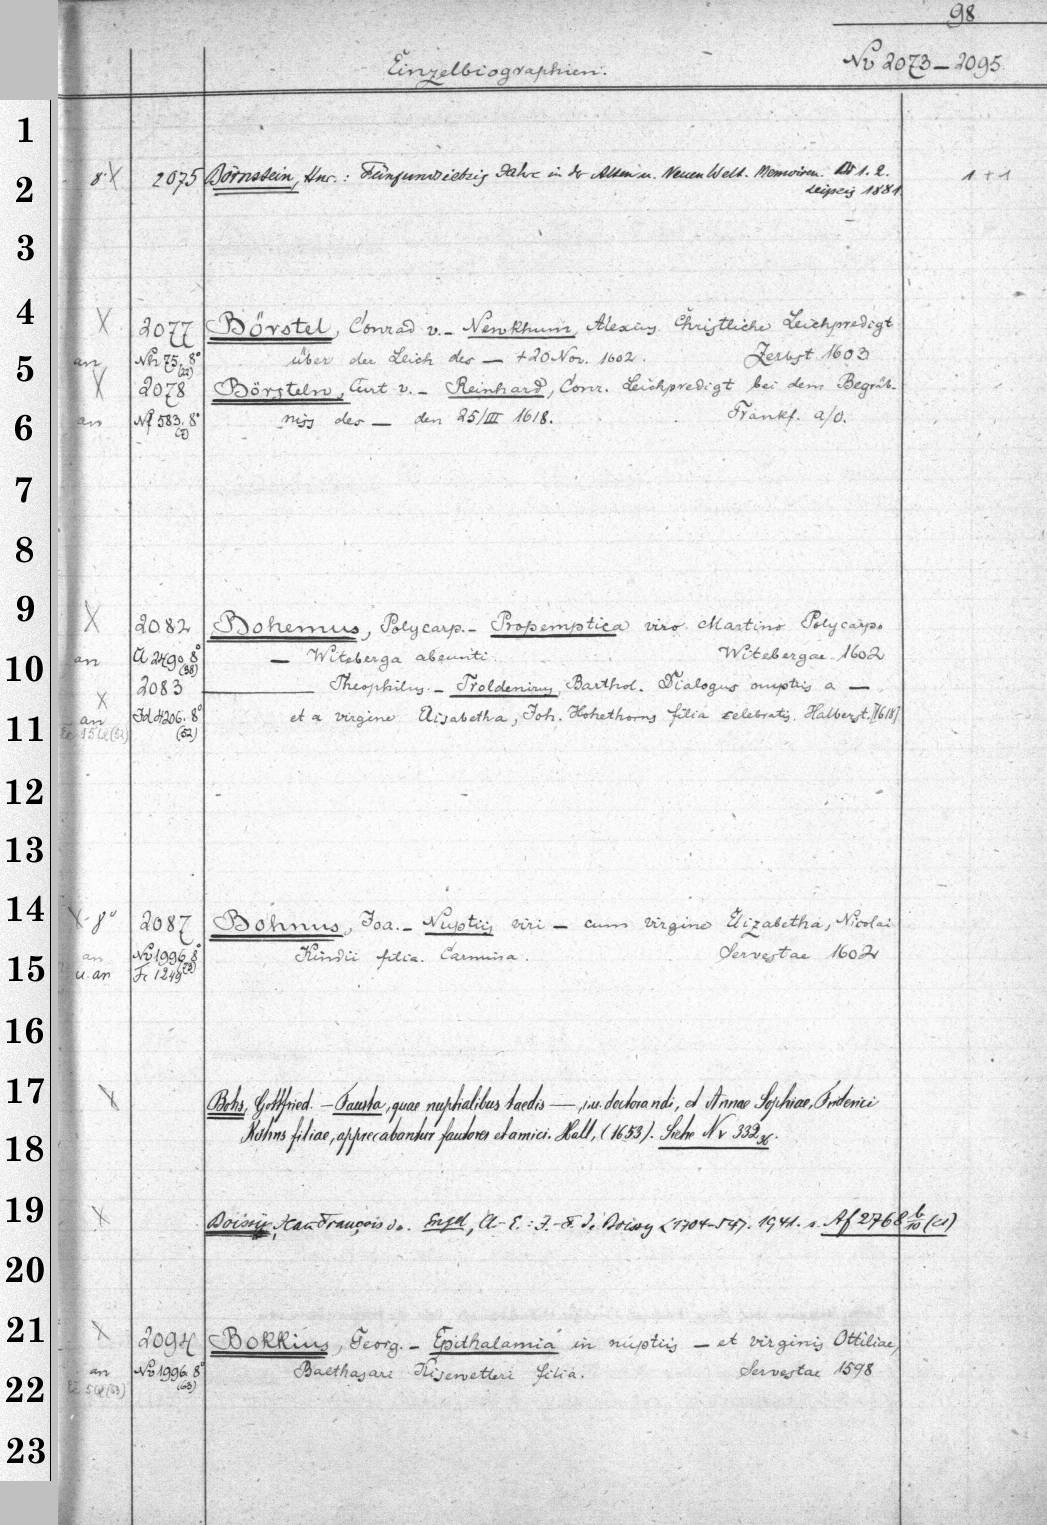 98
Einzelbiographien.
Nv 2073 – 2095
1
2
8° X 2075 Börnstein, Hnr.: Fünfundsiebzig Jahre in der Alten u. Neuen Welt. Memoiren. Bd 1. 2. 1 + 1
Leipzig 1881
3
4
X 2077 Börstel, Conrad v. – Newkhum, Alexius Christliche Leichpredigt
5
an Nh 75, 8° (22) über der Leich des — + 20 Nov. 1602. Zerbst 1603
X 2078 Börsteln, Curt v. – Reinhard, Conr. Leichpredigt bei dem Begräb-
6
an 583. 8° niss des — den 25/III 1618. Frankf. a/O.
7
8
9
X 2082 Bohemus, Polycarp. – Propemptica viro Martino Polycarpo
10
an 2490. 8° (38) — Witeberga abeunti. Witebergae 1602
X 2083 —— Theophilus. – Troldenirus, Barthol. Dialogus nuptiis a —
11
an 4206. 8° (52) et a virgine Elisabetha, Joh. Hohethorns filia celebratis. Halberst. [1618]
12
13
14
X 8° 2087 Bohnus, Joa. – Nuptiis viri — cum virgine Elizabetha, Nicolai
15
an Nv 1996. 8° Kindii filia. Carmina. Servestae 1602
u. an Fc 1249
16
17
X Bohs, Gottfried. – Fausta, quae nuptialibus taedis —, i.u. doctorandi, et Annae Sophiae, Friderici
18
filiae, apprecabantur fautores et amici. Hall, (1653). Siehe Nv 332 36.
19
X Boissy, Jean François de. Engel, C.-E.: J.-F. de Boissy (1704–54). 1941. s. Af 2768 b/10 (61)
20
21
X 2094 Bokkius, Georg. – Epithalamia in nuptiis — et virginis Ottiliae,
22
an Nv 1996. 8° (63) Balthasari Kisewetteri filia. Servestae 1598
23